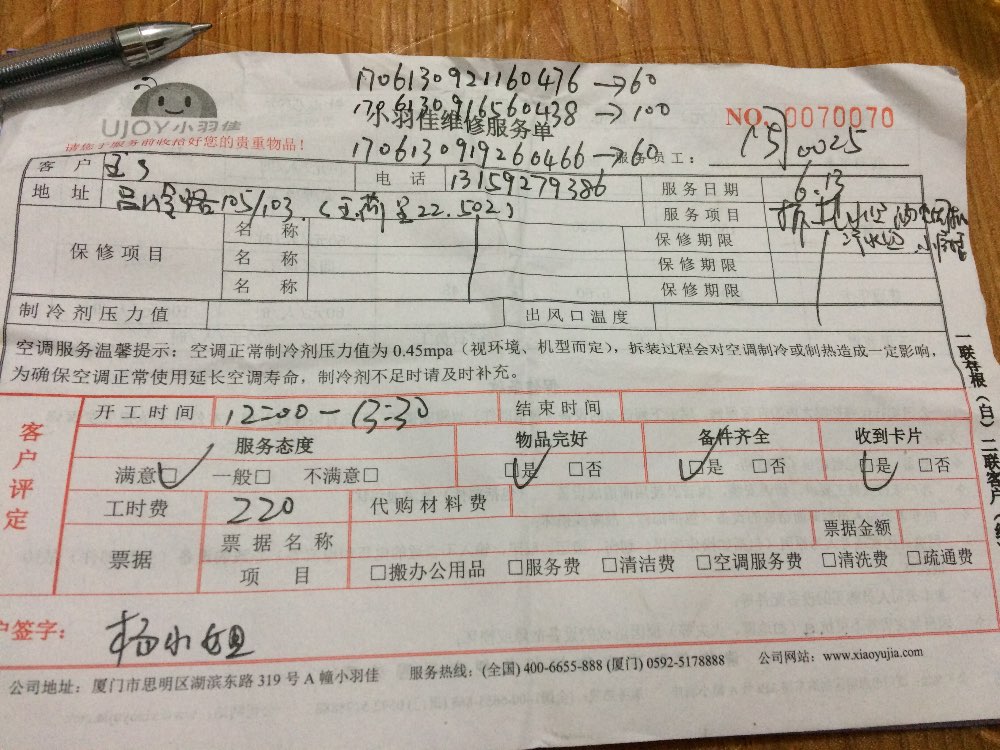 170613092116​0476→60
170613091656​0438→100
UJOY小羽佳
小羽佳维修服务单
NO. 0070070
请您于服务前收拾好您的贵重物品!
170613091926​0466→60
服务员工: 0025
客户
电话 13159279386
服务日期 6.13
地址 105/103 22.502)
服务项目
保修项目
名称 保修期限
名称 保修期限
名称 保修期限
制冷剂压力值 出风口温度
空调服务温馨提示:空调正常制冷剂压力值为0.45mpa(视环境、机型而定),拆装过程会对空调制冷或制热造成一定影响,
为确保空调正常使用延长空调寿命,制冷剂不足时请及时补充。
一联存根(白)二联客户(
客户评定
开工时间 12:00-13:30 结束时间
服务态度 物品完好 备件齐全 收到卡片
满意□ 一般□ 不满意□ □是 □否 □是 □否 □是 □否
工时费 220 代购材料费
票据 票据名称 票据金额
项目 □搬办公用品 □服务费 □清洁费 □空调服务费 □清洗费 □疏通费
户签字: 杨小姐
公司地址:厦门市思明区湖滨东路319号A幢小羽佳 服务热线:(全国)400-6655-888 (厦门)0592-5178888 公司网站:www.xiaoyujia.com